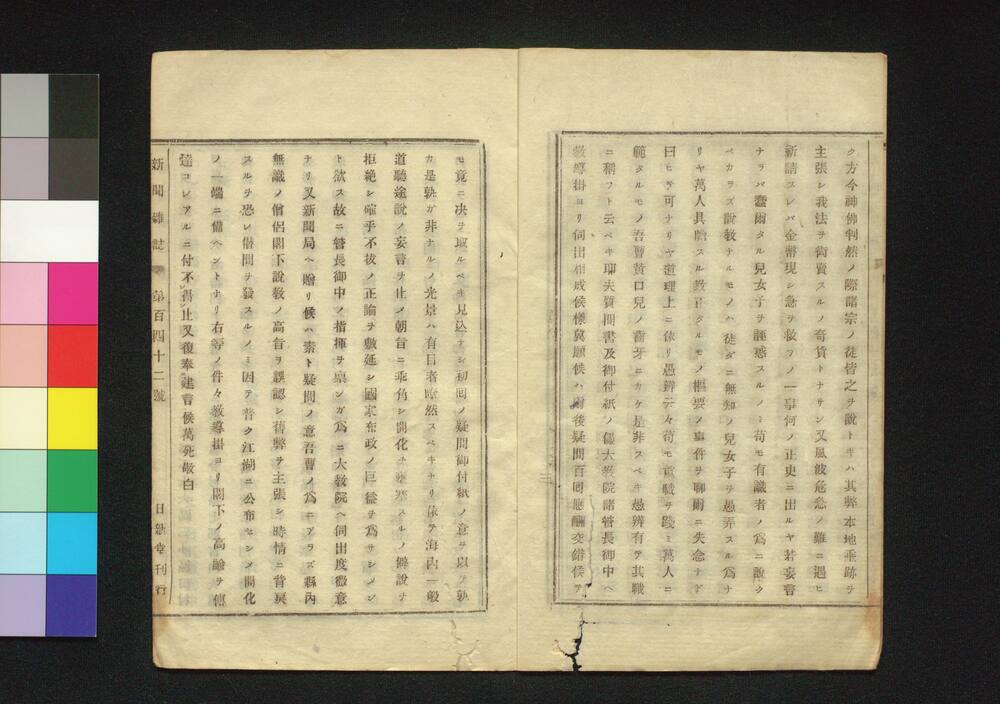 ク方今神佛判然ノ際諸宗ノ徒皆之ヲ說トキハ其弊本地垂跡ヲ
主張シ我法ヲ衒賣スルノ奇貨トナサン又風波危急ノ難ニ遇ヒ
新請スレバ金幣現シ急ヲ救フノ一事何ノ正史ニ出ルヤ若妄誉
ナラバ蠢爾タル兒女子ヲ誣惑スルノミ苟モ有識者ノ爲ニ說ク
ベカラズ說敎ナルモノハ徒ダニ無知ノ兒女子ヲ愚弄スル爲ナ
リヤ萬人具瞻スル敎正タルモノ樞要ノ事件ヲ聊爾ニ失念ナド
曰ヒテ可ナリヤ道理上ニ依リ愚辨云々苟モ重職ヲ踐ミ萬人ニ
範タルモノ吾曹黃口兒ノ齒牙ニカケ是非スベキ愚辨有テ其職
ニ稱フト云ベキ聊夫質問書及御付紙ノ儘大敎院諸管長御中ヘ
敎導掛ヨリ伺出相成候樣冀願候ハ尉後疑問百囘應酬交錯候ヲ
モ竟ニ决ヲ取ルベキ見込ナシ初囘ノ疑問御付紙ノ意ヲ以テ孰
カ是孰ガ非ナルノ光景ハ有目者瞭然スベキナリ依テ海内一般
道聽途說ノ妄言ヲ止ノ朝旨ニ乖角シ開化ヲ壅塞スルノ僻說ヲ
拒絕シ確乎不拔ノ正諭ヲ敷延シ國家布政ノ巨益ヲ爲サシメン
ト欲ス故ニ管長御中ノ指揮ヲ稟ンガ爲ニ大敎院ヘ伺出度微意
ナリ又新聞局ヘ贈リ候ハ素ト疑問ノ意吾曹ノ爲ニアラズ縣內
無識ノ僧侶閣下說敎ノ高旨ヲ誤認シ舊弊ヲ主張シ時情ニ背戾
スルヲ恐レ僭問ヲ發スルノミ因テ普ク江湖ニ公布セシメ開化
ノ一端ニ備ヘントナリ右等ノ件々敎導掛ヨリ閣下ノ高諭ヲ傳
達コレアルニ付不得止又復奉建言候萬死敬白
新聞雜誌 第百四十二號 日新堂刊行